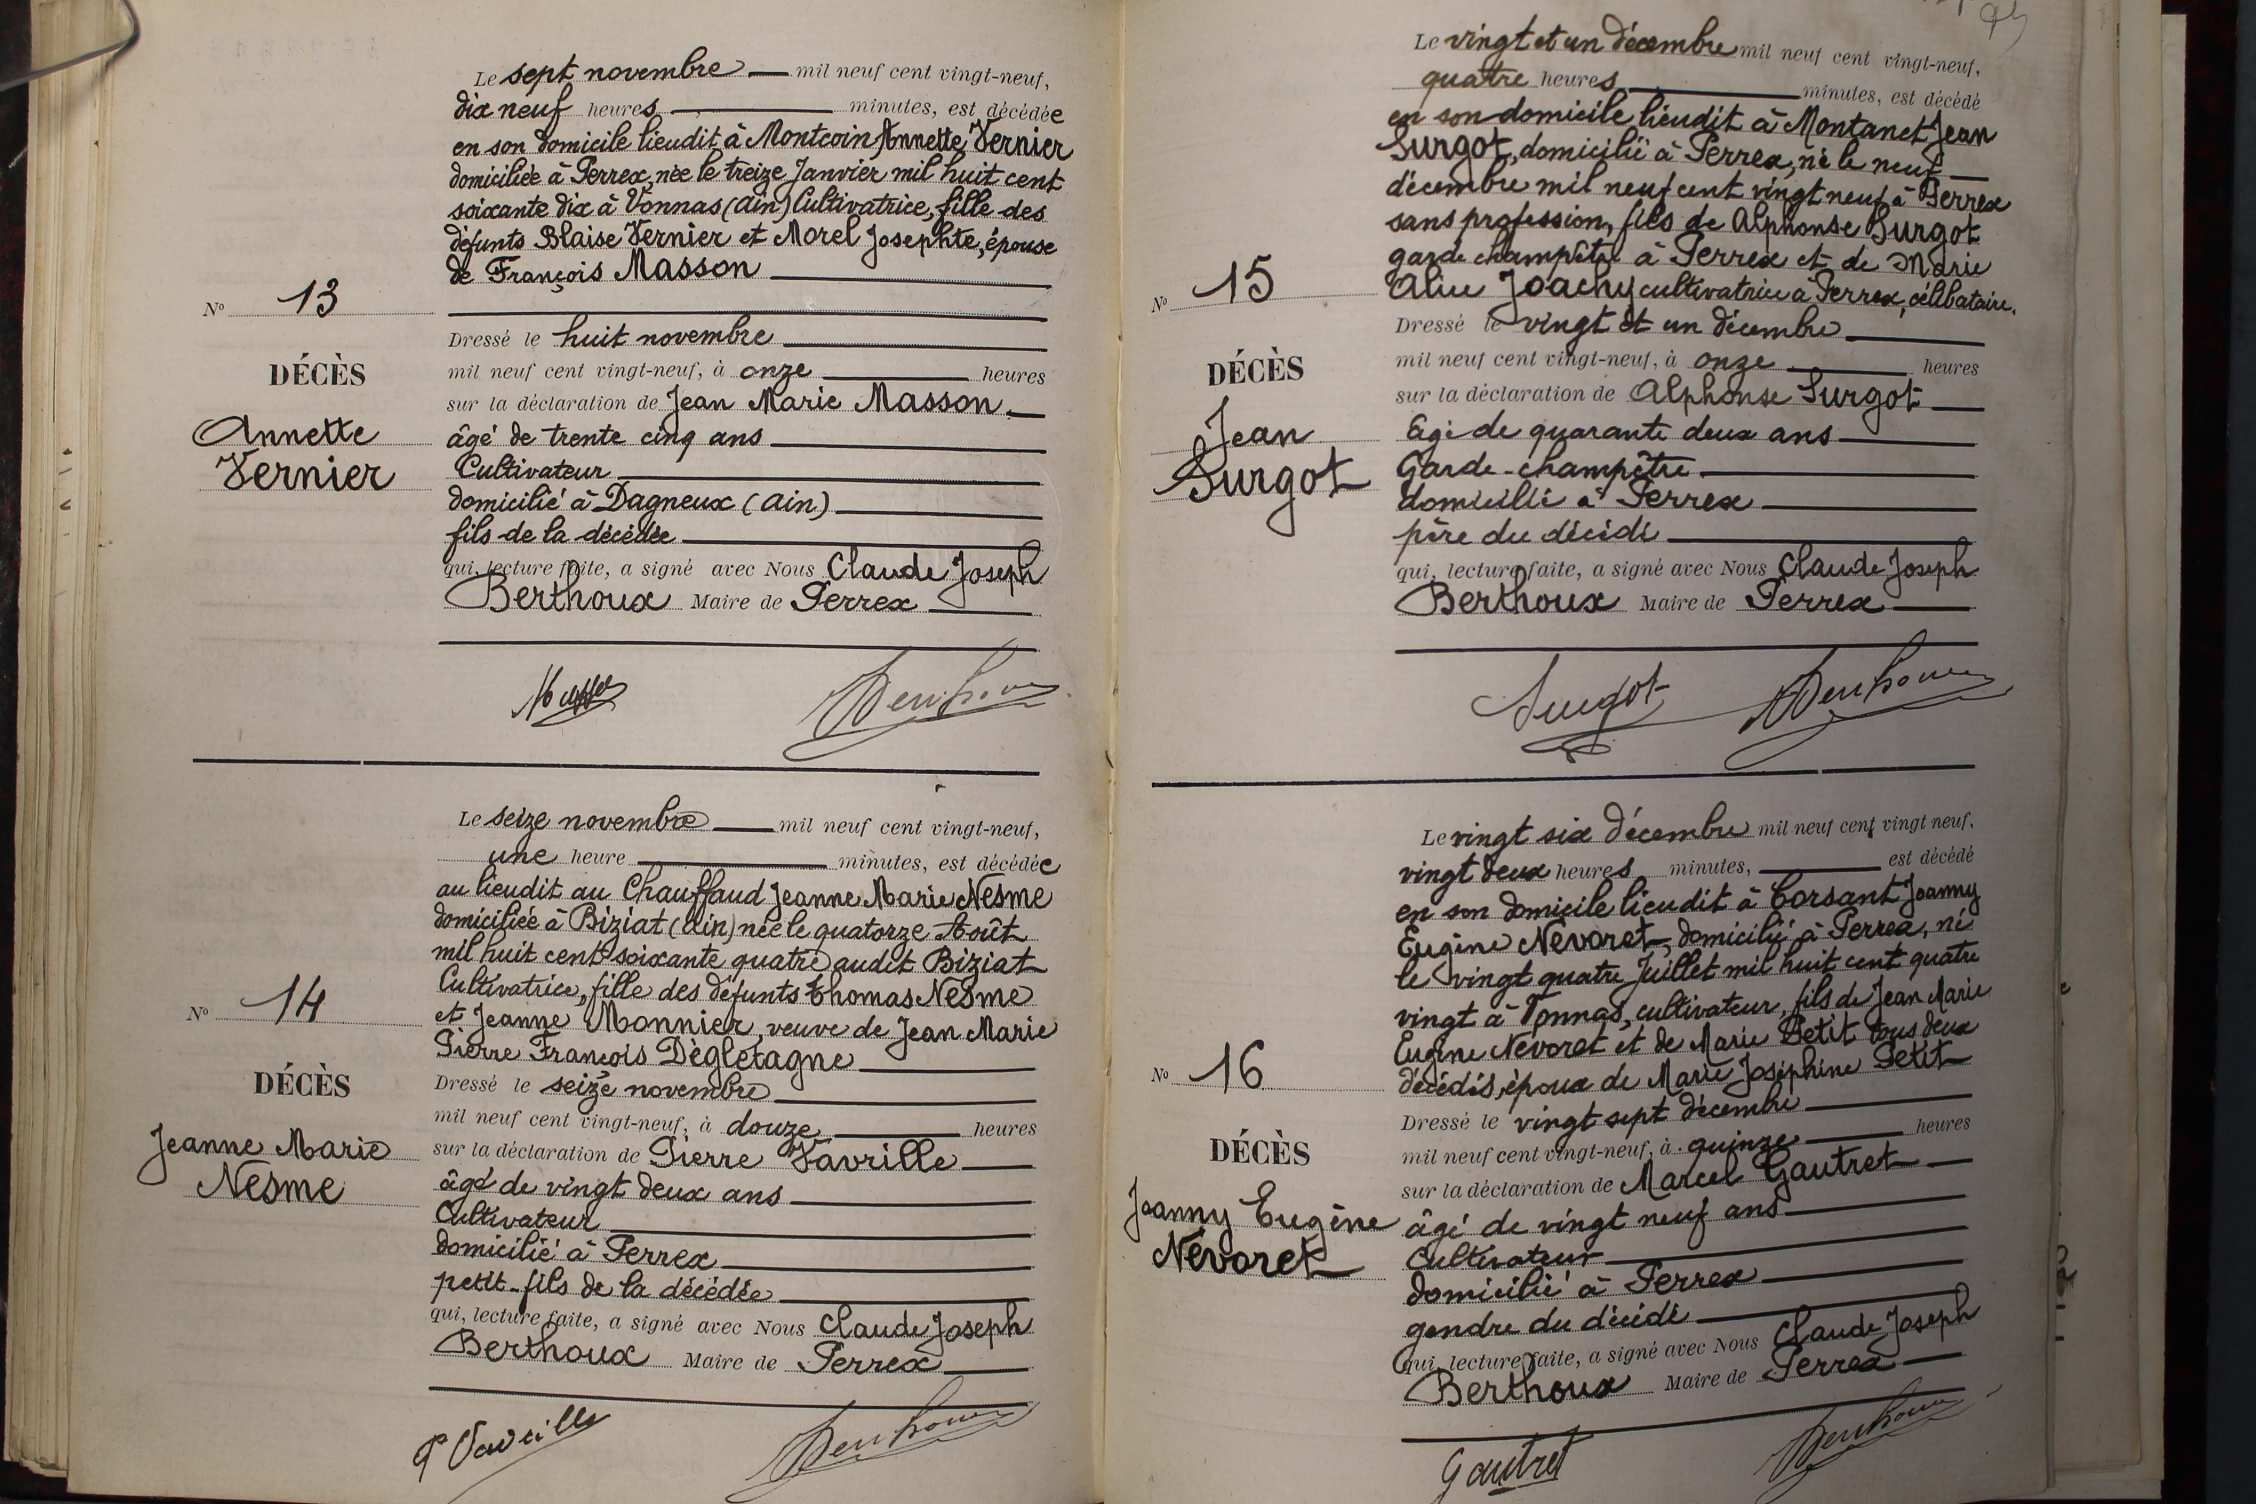 Le sept novembre mil neuf cent vingt-neuf,
dix neuf heures minutes, est décédée
en son domicile lieudit à Montcoin Annette Vernier
domiciliée à Perrex, née le treize Janvier mil huit cent
soixante dix à Vonnas (Ain) Cultivatrice, fille des
défunts Blaise Vernier et Morel Josephte, épouse
de François Masson
N° 13
Dressé le huit novembre
DÉCÈS
mil neuf cent vingt-neuf, à onze heures
sur la déclaration de Jean Marie Masson
Annette
Vernier
âgé de trente cinq ans
Cultivateur
domicilié à Dagneux (Ain)
fils de la décédée
qui, lecture faite, a signé avec Nous Claude Joseph
Berthoux Maire de Perrex
Le seize novembre mil neuf cent vingt-neuf,
une heure minutes, est décédée
au lieudit au Chauffaud Jeanne Marie Nesme
domiciliée à Biziat (Ain) née le quatorze Août
mil huit cent soixante quatre audit Biziat
Cultivatrice, fille des défunts Thomas Nesme
et Jeanne Monnier, veuve de Jean Marie
Pierre François Dégletagne
N° 14
Dressé le seize novembre
DÉCÈS
mil neuf cent vingt-neuf, à douze heures
sur la déclaration de Pierre Vavrille
Jeanne Marie
Nesme
âgé de vingt deux ans
Cultivateur
domicilié à Perrex
petit-fils de la décédée
qui, lecture faite, a signé avec Nous Claude Joseph
Berthoux Maire de Perrex
P Vavrille
Le vingt et un décembre mil neuf cent vingt-neuf,
quatre heures minutes, est décédé
en son domicile lieudit à Montanet Jean
Surgot, domicilié à Perrex, né le neuf
décembre mil neuf cent vingt neuf à Perrex
sans profession, fils de Alphonse Surgot
garde champêtre à Perrex et de Marie
Alice Joachy cultivatrice à Perrex, célibataire.
N° 15
Dressé le vingt et un décembre
DÉCÈS
mil neuf cent vingt-neuf, à onze heures
sur la déclaration de Alphonse Surgot
Jean
Surgot
âgé de quarante deux ans
Garde-champêtre
domicilié à Perrex
père du décédé
qui, lecture faite, a signé avec Nous Claude Joseph
Berthoux Maire de Perrex
Surgot
Le vingt six décembre mil neuf cent vingt neuf,
vingt deux heures minutes, est décédé
en son domicile lieudit à Corsant Joanny
Eugène Nevoret, domicilié à Perrex, né
le vingt quatre Juillet mil huit cent quatre
vingt à Vonnas, cultivateur, fils de Jean Marie
Eugène Nevoret et de Marie Petit tous deux
décédés, époux de Marie Joséphine Petit
N° 16
Dressé le vingt sept décembre
DÉCÈS
mil neuf cent vingt-neuf, à quinze heures
sur la déclaration de Marcel Gautret
Joanny Eugène
Nevoret
âgé de vingt neuf ans
Cultivateur
domicilié à Perrex
gendre du décédé
qui, lecture faite, a signé avec Nous Claude Joseph
Berthoux Maire de Perrex
Gautret